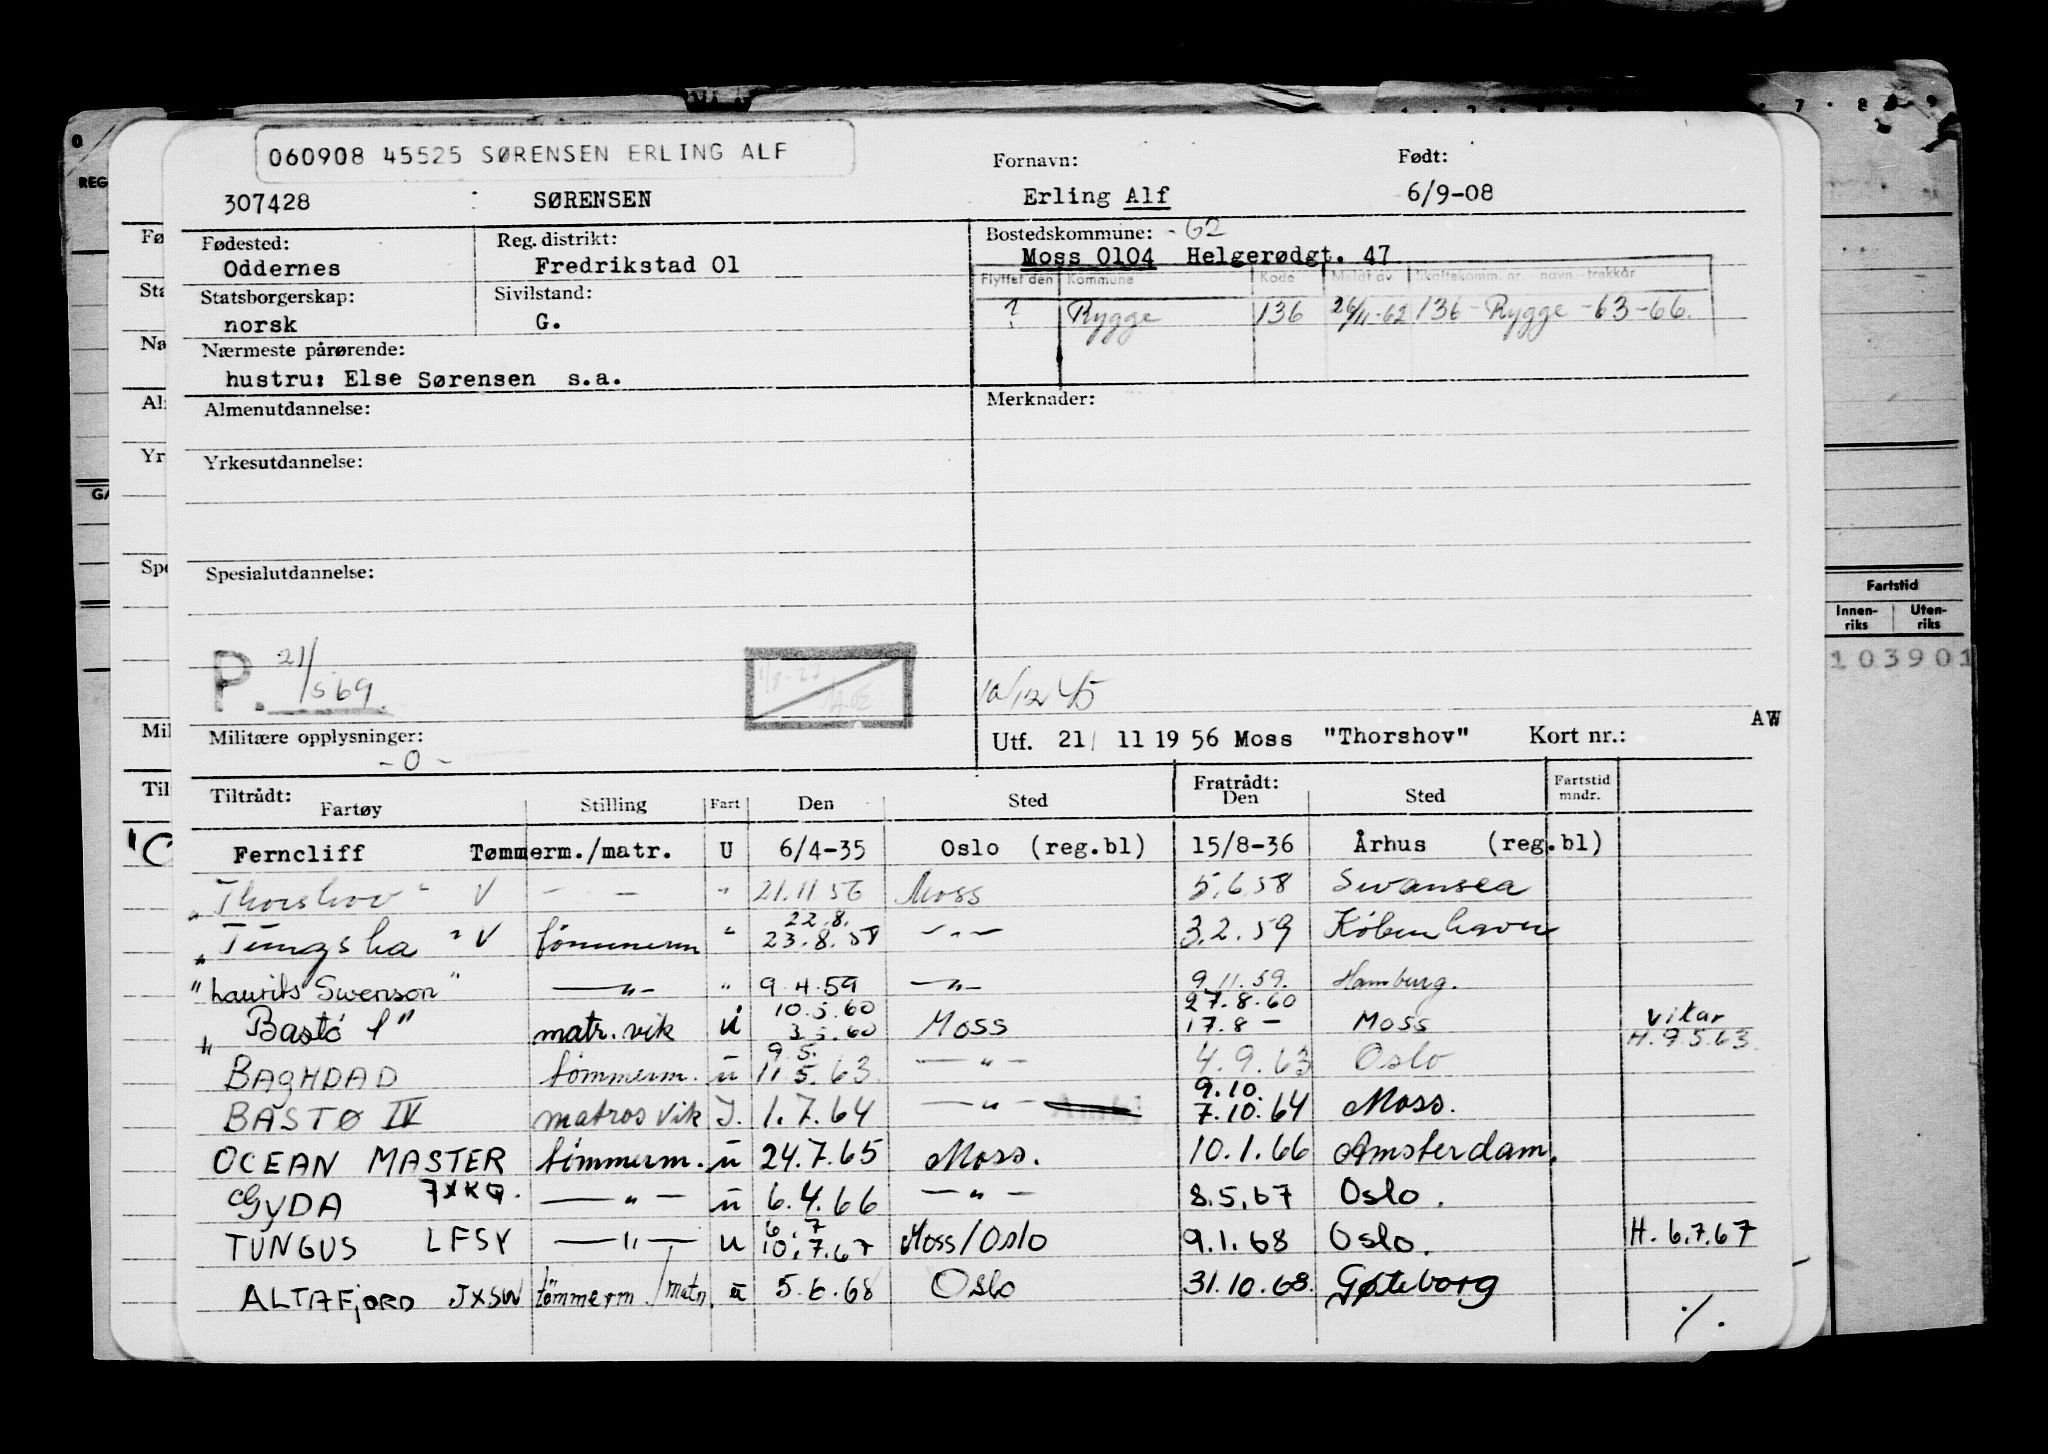 060908 45525 SØRENSEN ERLING ALF
Fornavn: Født:
307428 SØRENSEN Erling Alf 6/9-08
Fødested: Reg. distrikt: Bostedskommune: - 62
Oddernes Fredrikstad 01 Moss 0104 Helgerødgt. 47
Flyttet den Kommune Kode Meldt av Skattekomm. nr. - navn - trekkår
Statsborgerskap: Sivilstand:
norsk G. ? Rygge 136 26/11-62 136 - Rygge - 63-66.
Nærmeste pårørende:
hustru: Else Sørensen s.a.
Almenutdannelse: Merknader:
Yrkesutdannelse:
Spesialutdannelse:
P. 21/569.
10/12 45
AW
Militære opplysninger: Utf. 21/ 11 19 56 Moss "Thorshov" Kort nr.:
- 0 -
Tiltrådt: Fratrådt: Fartstid
Fartøy Stilling Fart Den Sted Den Sted mndr.
Ferncliff Tømmerm./matr. U 6/4-35 Oslo (reg.bl) 15/8-36 Århus (reg.bl)
"Thorshov" V — — " 21.11 56 Moss 5.6.58 Swansea
22.8.
"Tungsha" V tømmerm " 23.8.58 —"— 3.2.59 København
"Laurits Swenson" —"— " 9.4.59 —"— 9.11.59. Hamburg.
10.5.60 27.8.60
"Bastö I" matr. vik u 3.5.60 Moss 17.8 — Moss vikar
9.5. H. 9.5.63
BAGHDAD tømmerm. u 11.5.63. —"— 4.9.63 Oslo
9.10.
BASTØ IV matros vik I. 1.7.64 —"— 7.10.64 Moss.
OCEAN MASTER tømmerm. u 24.7.65 Moss. 10.1.66 Amsterdam.
GYDA 7XKQ. —"— u 6.4.66 —"— 8.5.67 Oslo.
6. 7
TUNGUS LFSY —"— u 10.7.67 Moss/Oslo 9.1.68 Oslo. H. 6.7.67
ALTAFJORD JXSW tømmerm./matr. u 5.6.68 Oslo 31.10.68. Gøteborg
./.
REG
Fø
Sta
Na
Al
Yr
GA
Spe
Mil
Til
"C
7 · 8 · 9
Fartstid
Innen-riks Uten-riks
103901